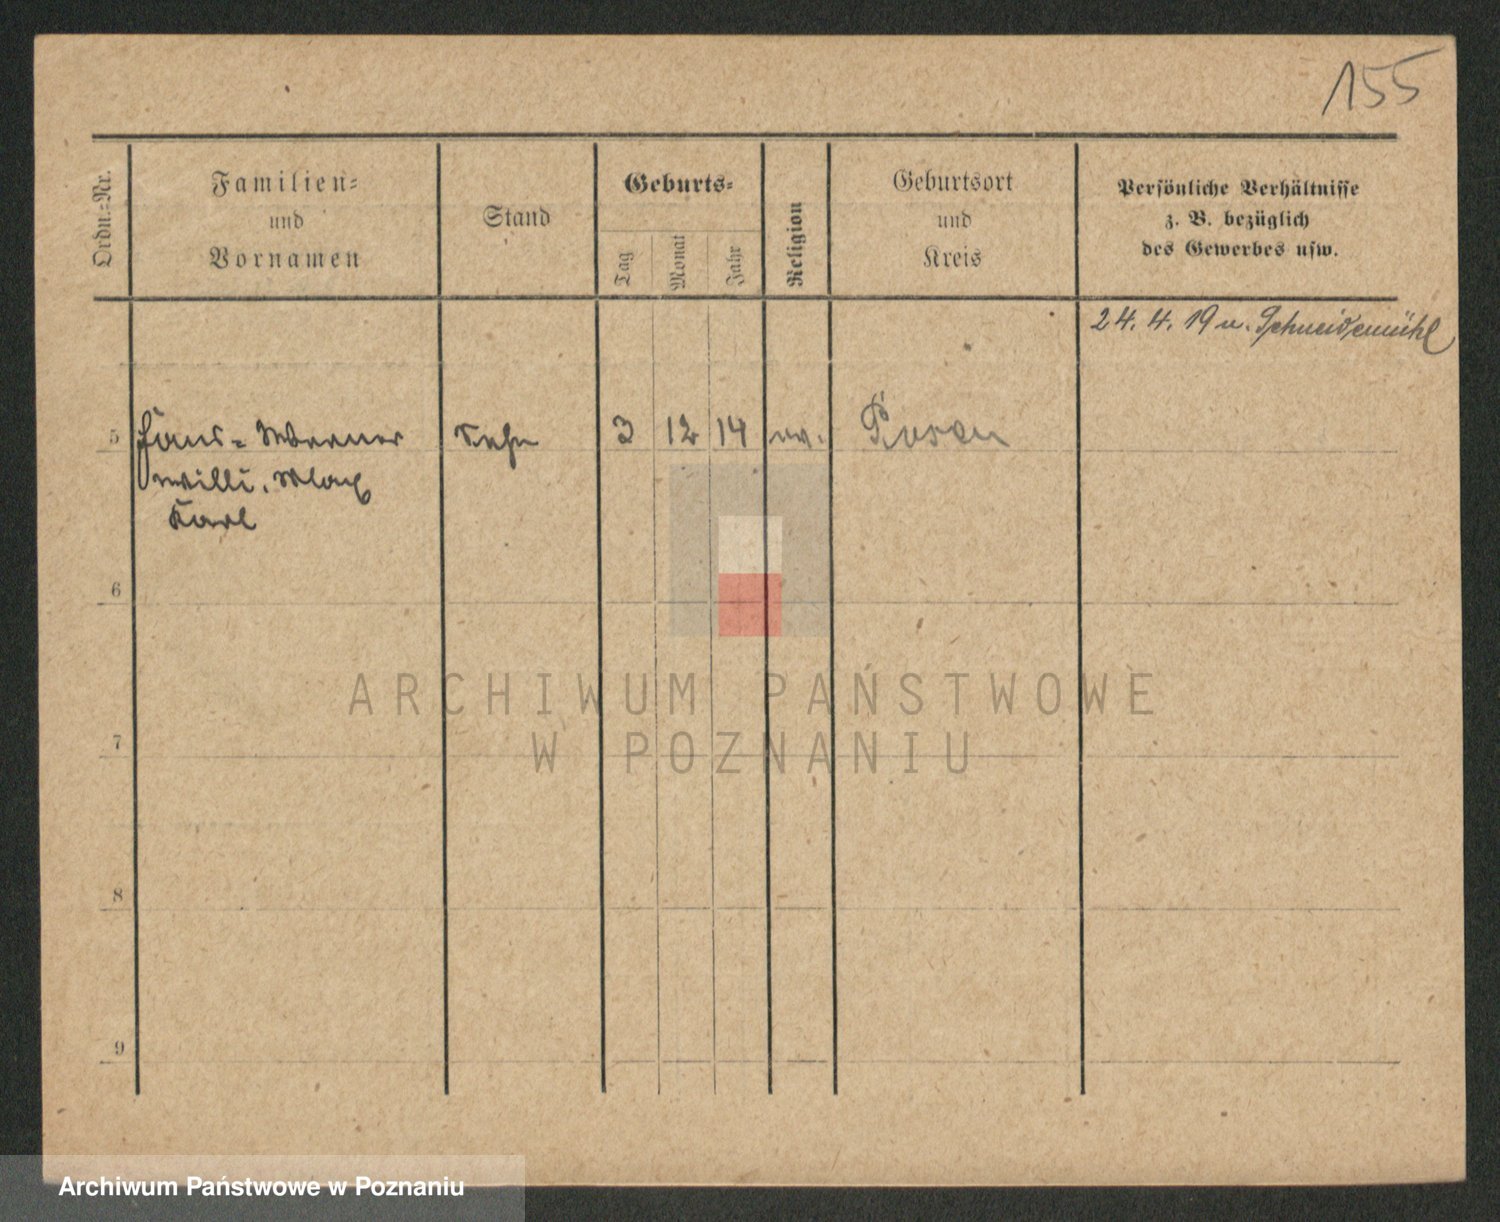 155
Ordn.=Nr.
Familien=
und
Vornamen
Stand
Geburts=
Tag
Monat
Jahr
Religion
Geburtsort
und
Kreis
Persönliche Verhältnisse
z. B. bezüglich
des Gewerbes usw.
24. 4. 19 n. Schneidemühl
5 Hans = Werner Sohn 3 12 14 ev. Posen
Willi, Max
Karl
6
7
8
9
ARCHIWUM PAŃSTWOWE
W POZNANIU
Archiwum Państwowe w Poznaniu